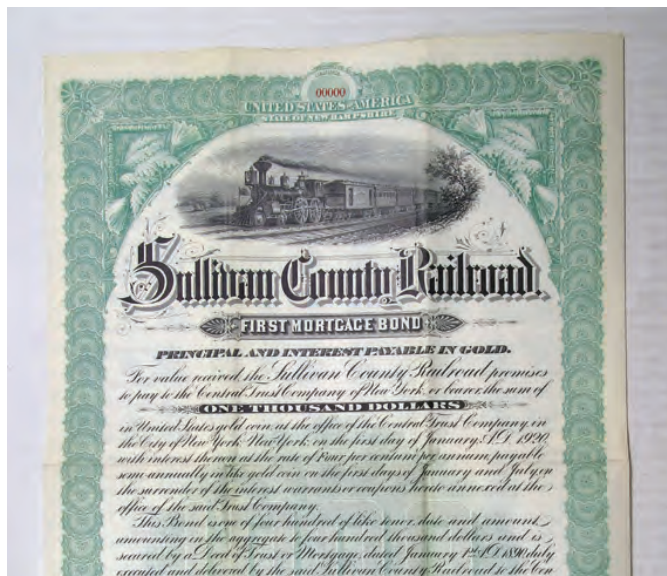 00000
UNITED STATES OF AMERICA
STATE OF NEW HAMPSHIRE
Sullivan County Railroad.
FIRST MORTGAGE BOND
PRINCIPAL AND INTEREST PAYABLE IN GOLD.
For value received, the Sullivan County Railroad promises
to pay to the Central Trust Company of New York, or bearer, the sum of
ONE THOUSAND DOLLARS
in United States gold coin, at the office of the Central Trust Company, in
the City of New York, New York, on the first day of January, A.D. 1920,
with interest thereon at the rate of Four per centum per annum, payable
semi-annually in like gold coin on the first days of January and July, on
the surrender of the interest warrants or coupons hereto annexed at the
office of the said Trust Company.
This Bond is one of four hundred of like tenor, date and amount,
amounting in the aggregate to four hundred thousand dollars and is
secured by a Deed of Trust or Mortgage, dated January 1st A.D. 1890, duly
executed and delivered by the said Sullivan County Railroad to the Cen